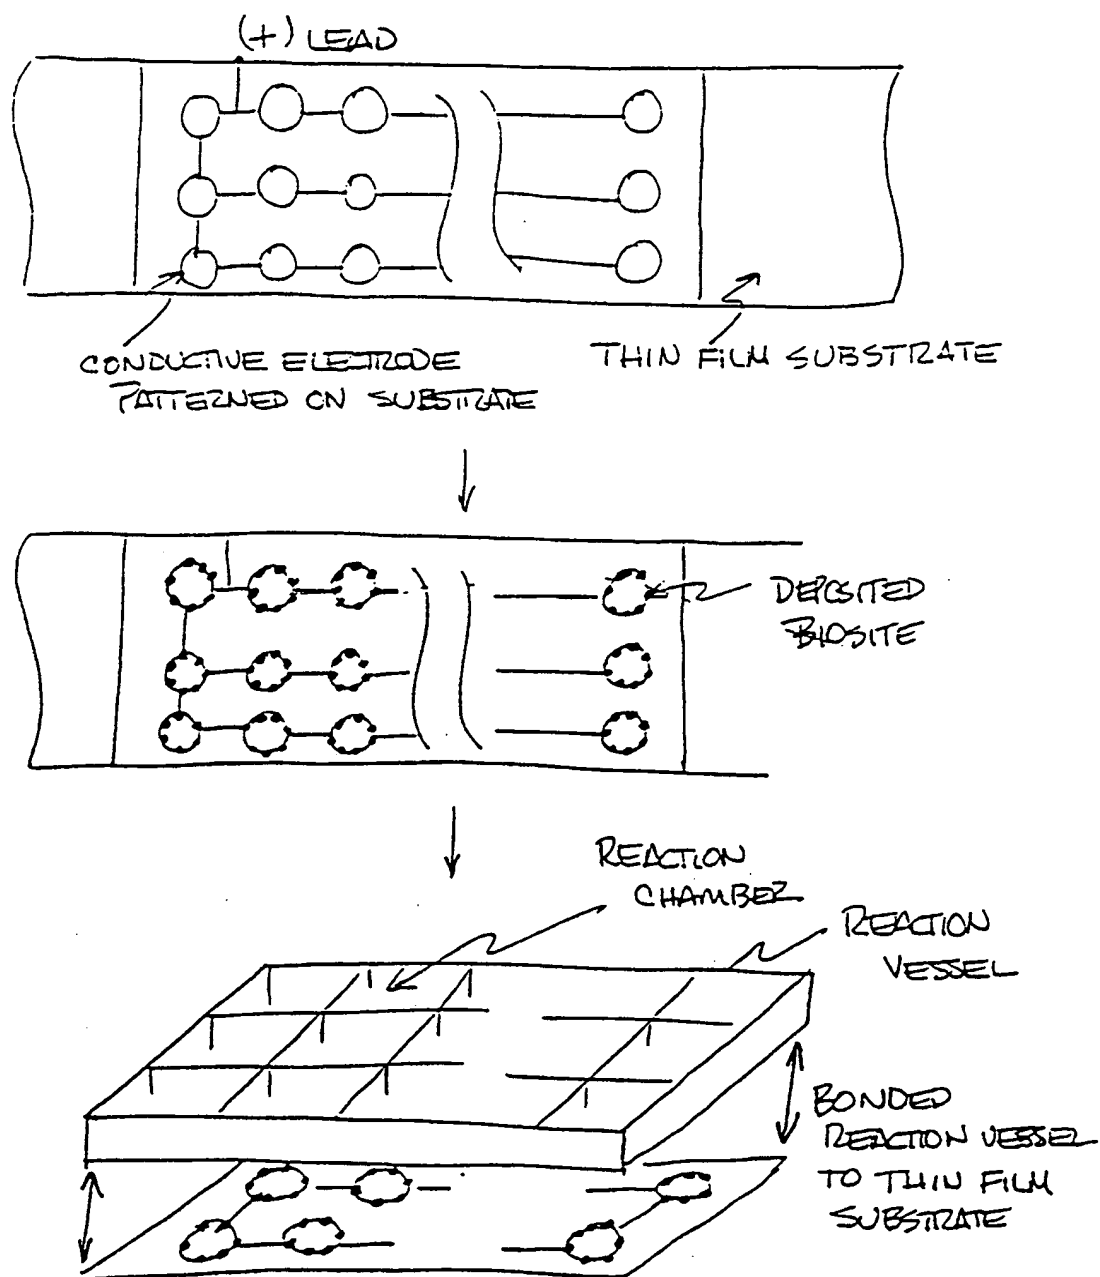 (+) LEAD
CONDUCTIVE ELECTRODE
PATTERNED ON SUBSTRATE
THIN FILM SUBSTRATE
DEPOSITED
BIOSITE
REACTION
CHAMBER
REACTION
VESSEL
BONDED
REACTION VESSEL
TO THIN FILM
SUBSTRATE